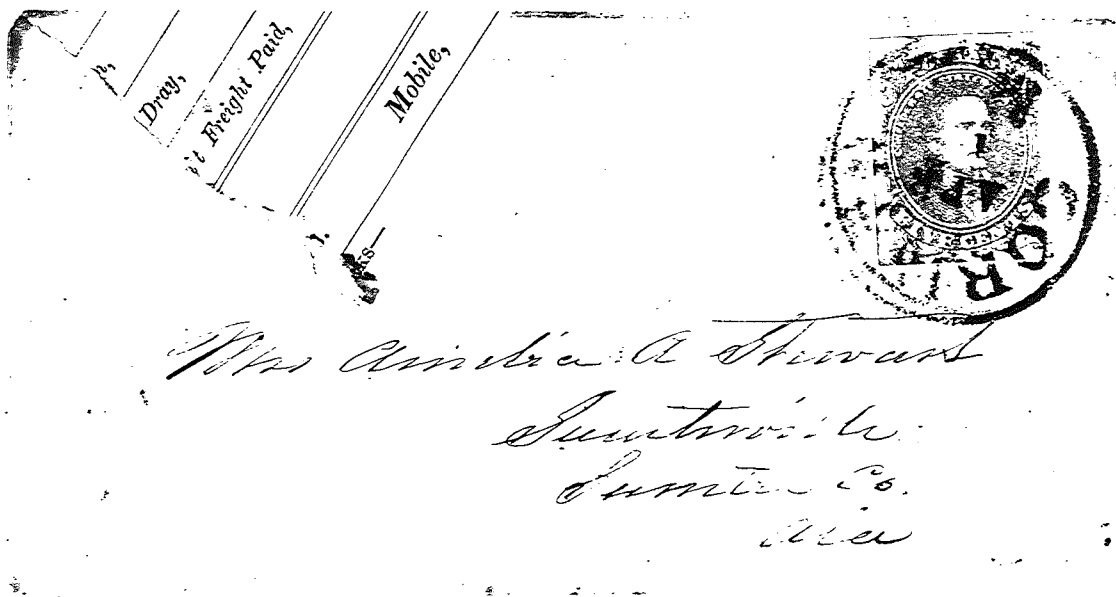 Dray,
't Freight Paid,
Mobile,
Mrs Amelia A Stewart
Sumterville
Sumter Co.
Ala